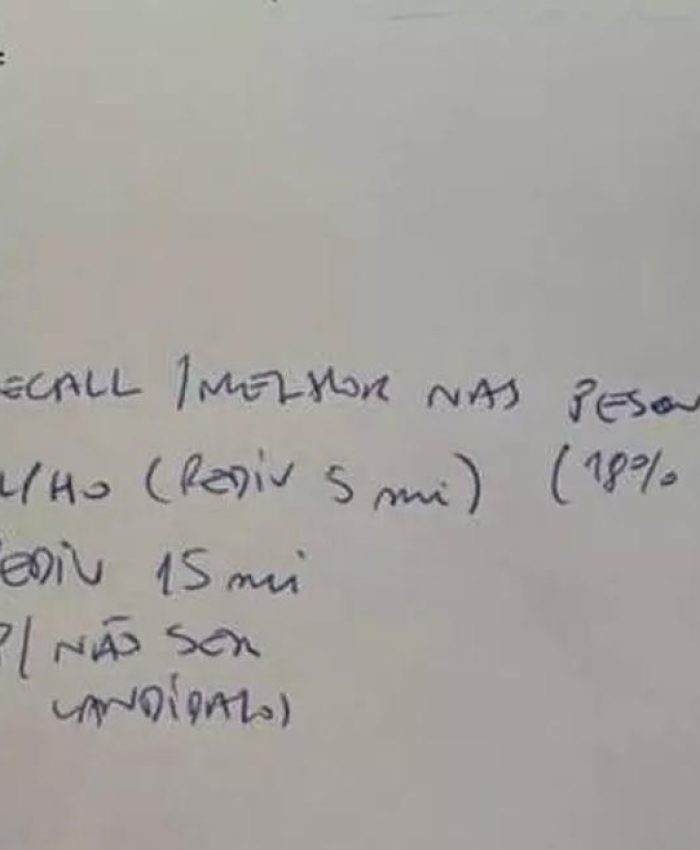 ECALL / MELHOR NAS PESQU
LHO (PEDIU 5 mi) (18%
EDIU 15 mi
P/ NÃO SER
CANDIDATO)